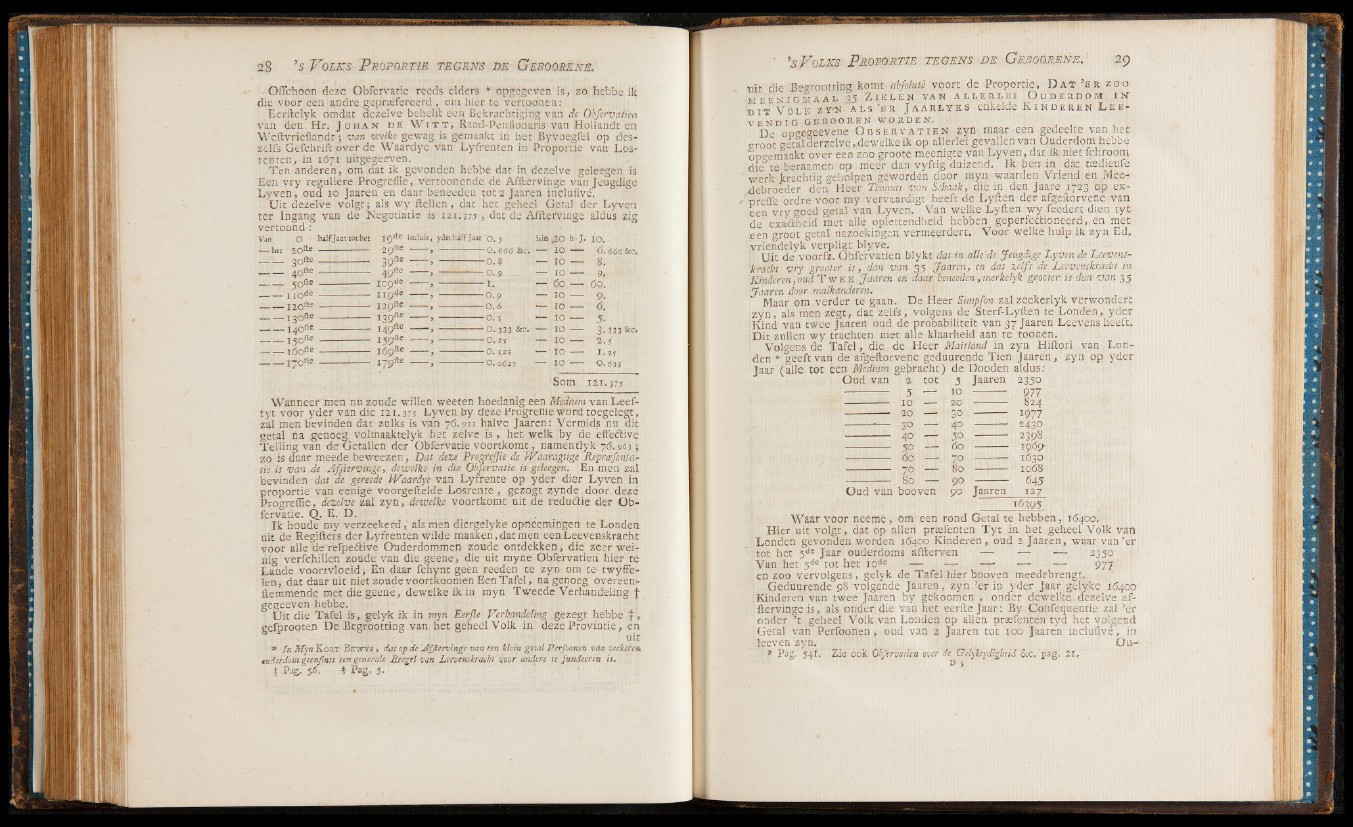 28 's VOLKS PROPORTIE TEGENS DE GEBOORENE.
Offchoon deze Obfervatie reeds elders * opgegeven is, zo hebbe ik
die voor een andre gepræfereerd, om hier te vertoonen:
Eerftelyk omdat dezelve behelft een Bekrachtiging van de Obfervatien
van den Hr. JOHAN DE WITT, Raad-Penfionaris van Hollandt en
Weftvrieflandt; van welke gewag is gemaakt in het Byvoegfel op des-
zelfs Gefchrift over de Waardye van Lyfrenten in Proportie van Los-
renten, in 1671 uitgegeeven.
Ten anderen, om dat ik gevonden hebbe dat in dezelve geleegen is
Een vry reguliere Progreffie, vertoonende de Aftervinge van Jeugdige
Lyven, oud 10 Jaaren en daar beneeden tot 2 Jaaren inclufivé.
Uit dezelve volgt; als wy ftellen, dat het geheel Getal der Lyven
ter Ingang van de Negotiatie is 121.375, dat de Aftervinge aldus zig
vertoond:
Van 0 half Jaar tot het 19de incluis, yder half Jaar 0. 5 is in 20 h. J. 10.
— het 20fte ——— 29fte ——, ——— 0. 666 &c. — 10 — 6. 666 &c.
— — 30fte ——— 39fte ——, ——— 0. 8 — 10 — 8.
— — 40fte ——— 49fte ——, ——— 0. 9 — 10 — 9.
— — 50fte ——— 109de ——, ——— 1. — 60 — 60.
— — 110de ——— 119de ——, ——— 0. 9 — 10 — 9.
— — 120fte ——— 129fte ——, ——— 0. 6 — 10 — 6.
— — 130fte ——— 139fte ——, ——— 0. 5 — 10 — 5.
— — 140fte ——— 149fte ——, ——— 0. 333 &c. — 10 — 3. 333 &c.
— — 150fte ——— 159fte ——, ——— 0. 25 — 10 — 2. 5
— — 160fte ——— 169fte ——, ——— 0. 125 — 10 — 1. 25
— — 170fte ——— 179fte ——, ——— 0. 0625 — 10 — 0. 625
Som 121. 375
Wanneer men nu zoude willen weeten hoedanig een Medium van Leef-
tyt voor yder van die 121.375 Lyven by deze Progreffie word toegelegt,
zal men bevinden dat zulks is van 76.922 halve Jaaren: Vermids nu dit
getal na genoeg volmaaktelyk het zelve is, het welk by de effective
Telling van de Getallen der Obfervatie voortkomt, namentlyk 76.963;
zo is daar meede beweezen, Dat deze Progreffie de Waaragtige Repræfenta-
tie is van de Afftervinge, dewelke in die Obfervatie is geleegen. En men zal
bevinden dat de gereede Waardye van Lyfrente op yder dier Lyven in
proportie van eenige voorgeftelde Losrente, gezogt zynde door deze
Progreffie, dezelve zal zyn, dewelke voortkomt uit de reductie der Ob-
fervatie. Q. E. D.
Ik houde my verzeekerd, als men diergelyke opneemingen te Londen
uit de Regifters der Lyfrenten wilde maaken, dat men een Leevenskracht
voor alle de refpective Ouderdommen zoude ontdekken, die zeer wei-
nig verfchillen zoude van die geene, die uit myne Obfervatien hier te
Lande voortvloeid; En daar fchynt geen reeden te zyn om te twyffe-
len, dat daar uit niet zoude voortkoomen Een Tafel, na genoeg overeen-
ftemmende met die geene, dewelke ik in myn Tweede Verhandeling †
gegeeven hebbe.
Uit die Tafel is, gelyk ik in myn Eerfte Verhandeling gezegt hebbe ‡,
gefprooten De Begrootting van het geheel Volk in deze Provintie, en
uit
* In Myn KORT BEWYS, dat op de Afftervinge van een klein getal Perfoonen van zeekeren
ouderdom geenfints een generale Reegel van Leevenskracht voor andere te fundeeren is.
† Pag. 56. ‡ Pag. 5.
's VOLKS PROPORTIE TEGENS DE GEBOORENE. 29
uit die Begrootting komt abfolutè voort de Proportie, DAT 'ER ZOO
MEENIGMAAL 35 ZIELEN VAN ALLERLEI OUDERDOM IN
DIT VOLK ZYN ALS 'ER JAARLYKS enkelde KINDEREN LEE-
VENDIG GEBOOREN WORDEN.
De opgegeevene OBSERVATIEN zyn maar een gedeelte van het
groot getal derzelve, dewelke ik op allerlei gevallen van Ouderdom hebbe
opgemaakt over een zoo groote meenigte van Lyven, dat ik niet fchroom
die te beraamen op meer dan vyftig duizend. Ik ben in dat tædieufe
werk krachtig geholpen geworden door myn waarden Vriend en Mee-
debroeder den Heer Thomas van Schaak, die in den Jaare 1723 op ex-
preffe ordre voor my vervaardigt heeft de Lyften der afgeftorvene van
een vry goed getal van Lyven. Van welke Lyften wy feedert dien tyt
de exactheid met alle oplettendheid hebben geperfectioneerd, en met
een groot getal nazoekingen vermeerdert. Voor welke hulp ik zyn Ed.
vriendelyk verpligt blyve.
Uit de voorfz. Obfervatien blykt dat in alle de Jeugdige Lyven de Leevens-
kracht vry grooter is, dan van 35 Jaaren, en dat zelfs de Leevenskracht in
Kinderen, oud TWEE Jaaren en daar beneeden, merkelyk grooter is dan van 35
Jaaren door malkanderen.
Maar om verder te gaan. De Heer Simpfon zal zeekerlyk verwondert
zyn, als men zegt, dat zelfs, volgens de Sterf-Lyften te Londen, yder
Kind van twee Jaaren oud de probabiliteit van 37 Jaaren Leevens heeft.
Dit zullen wy trachten met alle klaarheid aan te toonen.
Volgens de Tafel, die de Heer Maitland in zyn Hiftori van Lon-
den * geeft van de afgeftorvene geduurende Tien Jaaren, zyn op yder
Jaar (alle tot een Medium gebracht) de Dooden aldus:
Oud van 2 tot 5 Jaaren 2350
——— 5 — 10 ——— 977
——— 10 — 20 ——— 824
——— 20 — 30 ——— 1977
——— 30 — 40 ——— 2430
——— 40 — 50 ——— 2398
——— 50 — 60 ——— 1969
——— 60 — 70 ——— 1630
——— 70 — 80 ——— 1068
——— 80 — 90 ——— 645
Oud van booven 90 Jaaren 127
16395
Waar voor neeme, om een rond Getal te hebben, 16400.
Hier uit volgt, dat op allen præfenten Tyt in het geheel Volk van
Londen gevonden worden 16400 Kinderen, oud 2 Jaaren, waar van 'er
tot het 5de Jaar ouderdoms affterven — — — 2350
Van het 5de tot het 10de — — — — — 977
en zoo vervolgens, gelyk de Tafel hier booven meedebrengt.
Geduurende 98 volgende Jaaren, zyn 'er in yder Jaar gelyke 16400
Kinderen van twee Jaaren by gekoomen, onder dewelke dezelve af-
ftervinge is, als onder die van het eerfte Jaar: By Confequentie zal 'er
onder 't geheel Volk van Londen op allen præfenten tyd het volgend
Getal van Perfoonen, oud van 2 Jaaren tot 100 Jaaren inclufivé, in
leeven zyn. Ou-
* Pag. 541. Zie ook Obfervatien over de Gelyktydigheid &c. pag. 21.
D 3